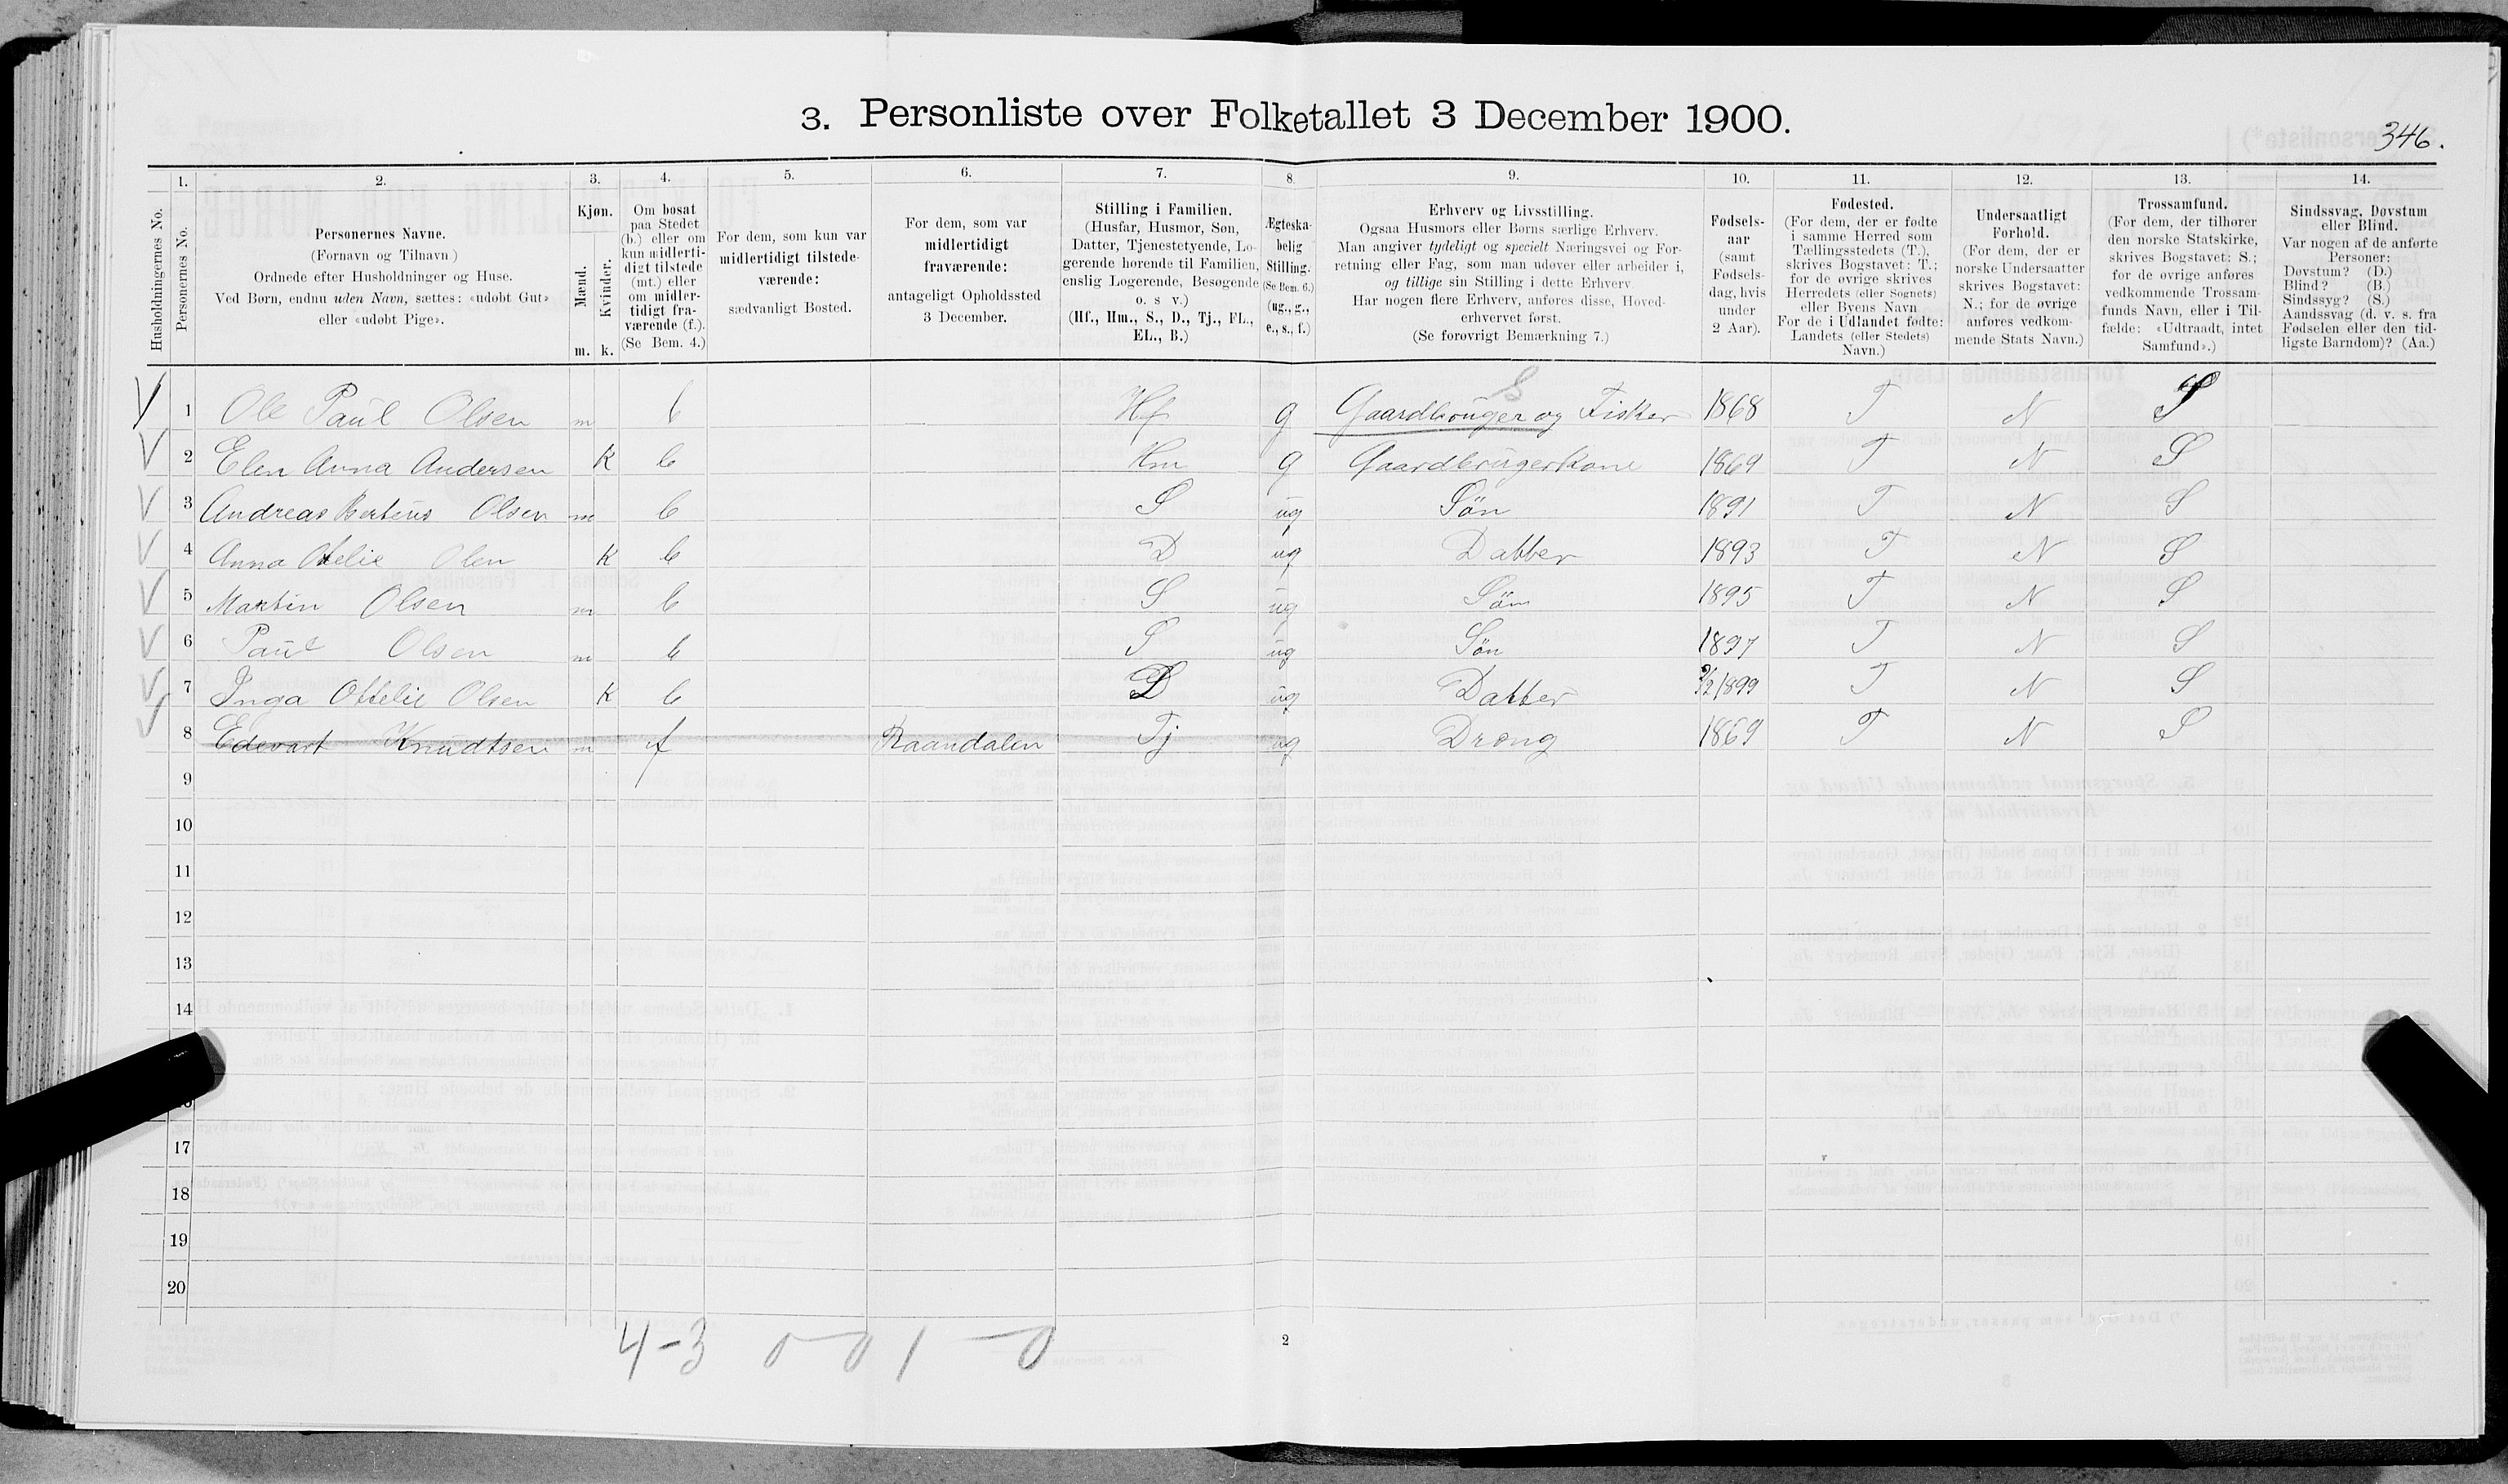 3. Personliste over Folketallet 3 December 1900.
346.
Husholdningernes No.
1.
Personernes No.
2.
Personernes Navne.
(Fornavn og Tilnavn)
Ordnede efter Husholdninger og Huse.
Ved Børn, endnu uden Navn, sættes: «udøbt Gut»
eller «udøbt Pige».
3.
Kjøn.
Mænd.
Kvinder.
m. k.
4.
Om bosat
paa Stedet
(b.) eller om
kun midlerti-
digt tilstede
(mt.) eller
om midler-
tidigt fra-
værende (f.).
(Se Bem. 4.)
5.
For dem, som kun var
midlertidigt tilstede-
værende:
sædvanligt Bosted.
6.
For dem, som var
midlertidigt
fraværende:
antageligt Opholdssted
3 December.
7.
Stilling i Familien.
(Husfar, Husmor, Søn,
Datter, Tjenestetyende, Lo-
gerende hørende til Familien,
enslig Logerende, Besøgende
o. s v.)
(Hf., Hm., S., D., Tj., FL.,
EL., B.)
8.
Ægteska-
belig
Stilling.
(Se Bem. 6.)
(ug., g.,
e., s., f.)
9.
Erhverv og Livsstilling.
Ogsaa Husmors eller Børns særlige Erhverv.
Man angiver tydeligt og specielt Næringsvei og For-
retning eller Fag, som man udøver eller arbeider i,
og tillige sin Stilling i dette Erhverv.
Har nogen flere Erhverv, anføres disse, Hoved-
erhvervet først.
(Se forøvrigt Bemærkning 7.)
10.
Fødsels-
aar
(samt
Fødsels-
dag, hvis
under
2 Aar).
11.
Fødested.
(For dem, der er fødte
i samme Herred som
Tællingsstedets (T.),
skrives Bogstavet: T.;
for de øvrige skrives
Herredets (eller Sognets)
eller Byens Navn
For de i Udlandet fødte:
Landets (eller Stedets)
Navn.)
12.
Undersaatligt
Forhold.
(For dem, der er
norske Undersaatter
skrives Bogstavet:
N.; for de øvrige
anføres vedkom-
mende Stats Navn.)
13.
Trossamfund.
(For dem, der tilhører
den norske Statskirke,
skrives Bogstavet: S.;
for de øvrige anføres
vedkommende Trossam-
funds Navn, eller i Til-
fælde: «Udtraadt, intet
Samfund».)
14.
Sindssvag, Døvstum
eller Blind.
Var nogen af de anførte
Personer:
Døvstum? (D.)
Blind? (B.)
Sindssyg? (S.)
Aandssvag (d. v. s. fra
Fødselen eller den tid-
ligste Barndom)? (Aa.)
8
1 Ole Paul Olsen m b Hf g Gaardbruger og Fisker 1868 T N S
2 Elen Anna Andersen K b Hm g Gaardbrugerkone 1869 T N S
3 Andreas Berteus Olsen m b S ug Sön 1891 T N S
4 Anna Otelie Olen K b D ug Datter 1893 T N S
5 Martin Olsen m b S ug Sön 1895 T N S
6 Paul Olsen m b S ug Sön 1897 T N S
7 Inga Ottelie Olsen K b D ug Datter 1899 T N S
8 Edevart Knudtsen m f Raandalen Tj ug Dreng 1869 T N S
9
10
11
12
13
14
17
18
19
20
4-3 0 - 0 1 - 0
2